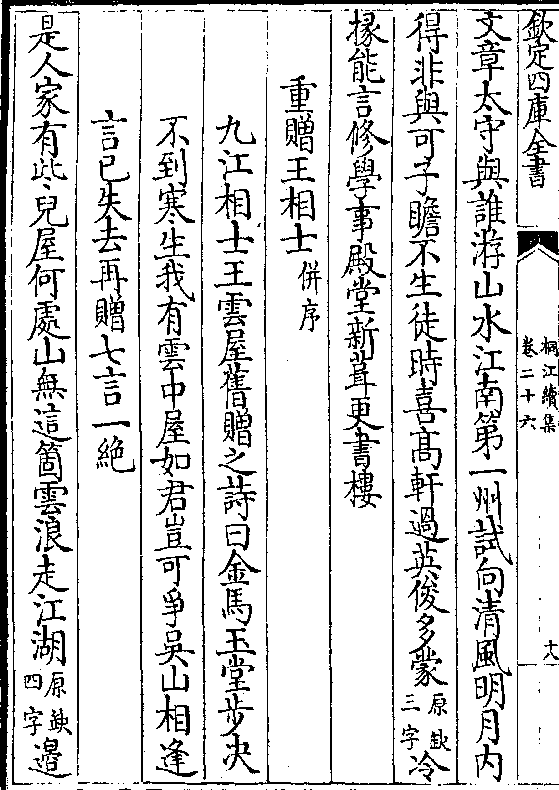 欽定四庫全書
桐江續集
卷二十六
文章太守與誰游山水江南第一州試向清風明月內
得非與可子瞻不生徒時喜高軒過英俊多蒙原缺三字冷
掾能言修學事殿堂新葺更書樓
重贈王相士併序
九江相士王雲屋舊贈之詩曰金馬玉堂步決
不到寒生我有雲中屋如君豈可爭吳山相逢
言已失去再贈七言一絶
是人家有此兒屋何處山無這箇雲浪走江湖原缺四字邉